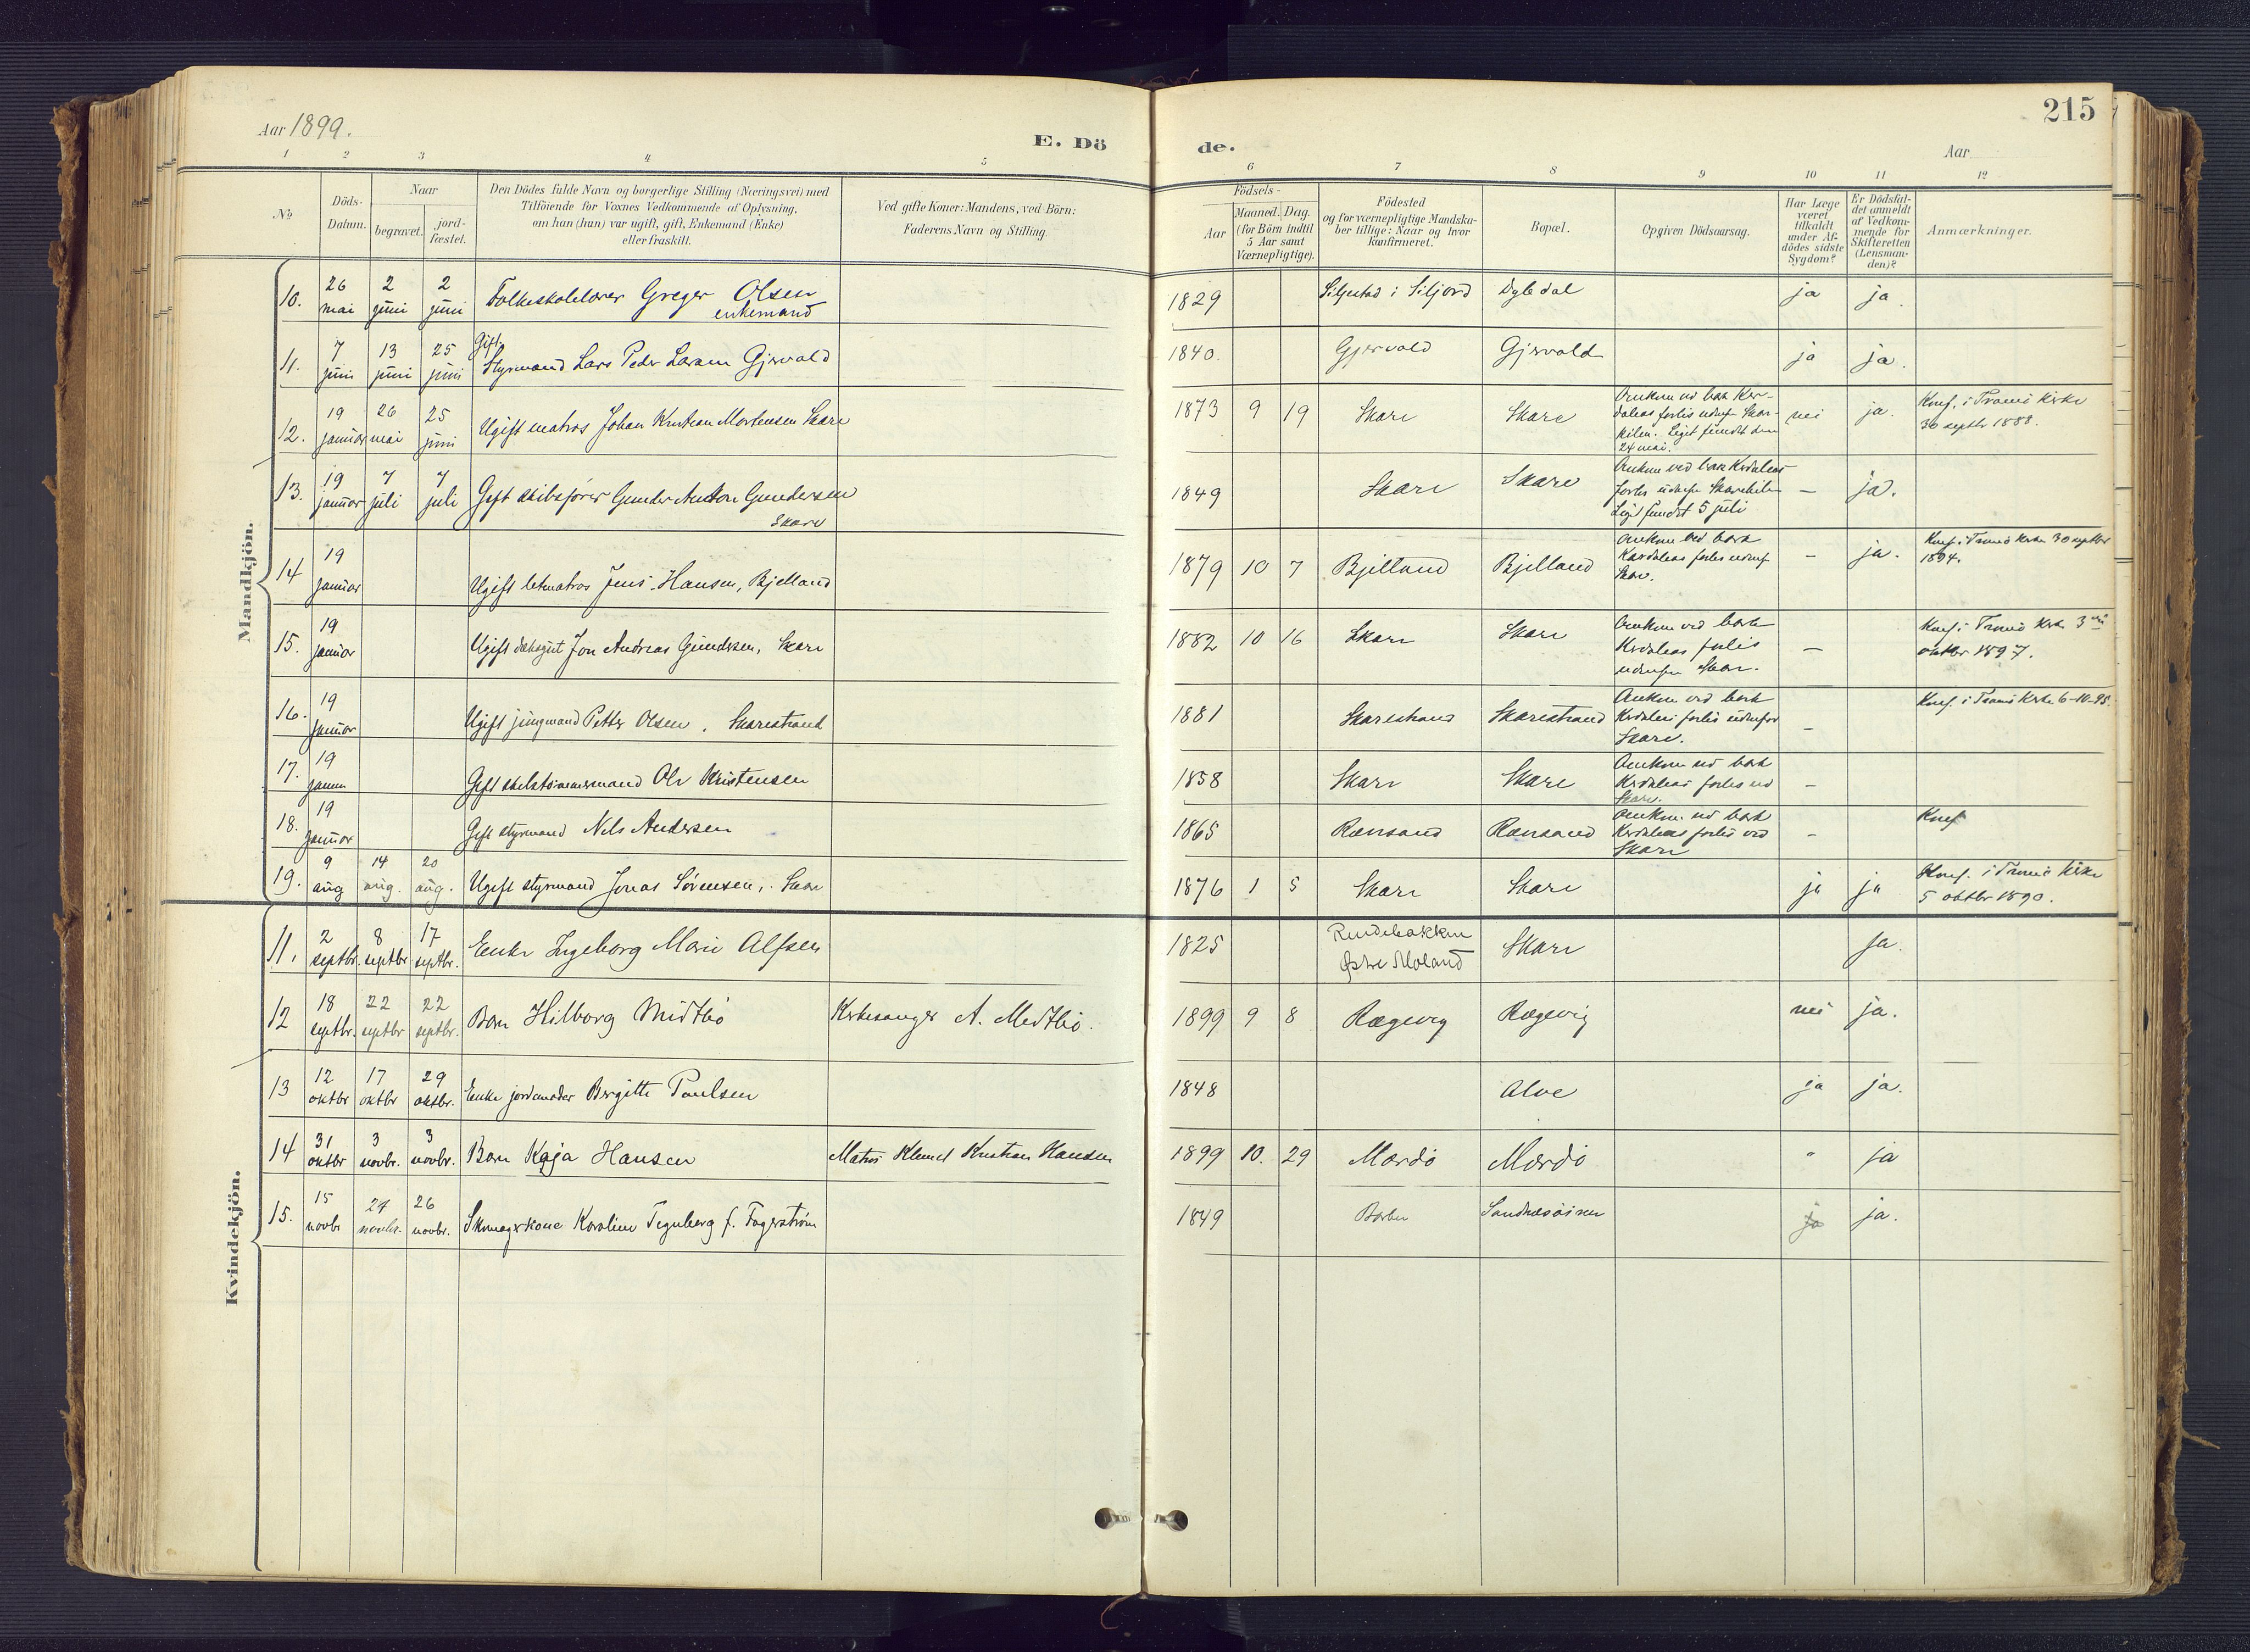 215
Aar 1899.
E. Dö
de.
Aar
1 2 3 4 5 6 7 8 9 10 11 12
№
Döds-
Datum.
Naar
begravet.
jord-
fæstet.
Den Dödes fulde Navn og borgerlige Stilling (Næringsvei) med
Tilföiende for Voxnes Vedkommende af Oplysning,
om han (hun) var ugift, gift, Enkemand (Enke)
eller fraskilt.
Ved gifte Koner: Mandens, ved Börn:
Faderens Navn og Stilling.
Födsels-
Aar
Maaned. Dag.
(for Börn indtil
5 Aar samt
Værnepligtige).
Födested
og for værnepligtige Mandska-
ber tillige: Naar og hvor
konfirmeret.
Bopæl.
Opgiven Dödsaarsag.
Har Læge
været
tilkaldt
under Af-
dödes sidste
Sygdom?
Er Dödsfal-
det anmeldt
af Vedkom-
mende for
Skifteretten
(Lensman-
den)?
Anmærkninger.
Mandkjön.
10. 26 mai 2 juni 2 juni Folkeskolelærer Greger Olsen
enkemand
1829 i Siljord Dybedal ja ja.
11. 7 juni 13 juni 25 juni Gift
Styrmand Lars Peder Gjervold
1840. Gjervold Gjervold ja ja.
12. 19 januar 26 mai 25 juni Ugift matros Johan Kristian Mortensen Skare
1873 9 19 Skare Skare Omkom ved bark Kor-
daleas forlis udenf Skar-
kilen. Liget fundet den
24 mai.
nei ja. Konf. i Tromö kirke
30 septbr 1888.
13. 19 januar 7 juli 7 juli Gift skibsförer Gunder Anton Gundersen
Skare
1849 Skare Skare Omkom ved bark Kordaleas
forlis udenfor Skarekilen
Liget fundet 5 juli
– ja.
14 19 januar Ugift letmatros Jens Hansen, Bjelland
1879 10 7 Bjelland Bjelland Omkom ved bark
Kordaleas forlis udenf
Skare.
– ja. Konf. i Tromö kirke 30 septbr
1894.
15. 19 januar Ugift Jon Andreas Gundersen, Skare
1882 10 16 Skare Skare Omkom ved bark
Kordaleas forlis
udenfor Skare.
– Konf. i Tromö kirke 3
oktbr 1897.
16. 19 januar Ugift jungmand Petter Olsen, Skarestrand
1881 Skarestrand Skarestrand Omkom ved bark
Kordaleas forlis udenfor
Skare.
– Konf. i Tromö kirke 6-10-95.
17. 19 januar Gift skibstömmermand Ole Kristensen
1858 Skare Skare Omkom ved bark
Kordaleas forlis ved
Skare.
–
18. 19 januar Gift styrmand Nils Andersen
1865 Rönsand Rönsand Omkom ved bark
Kordaleas forlis ved
Skare
– Konf
19. 9 aug 14 aug. 20 aug. Ugift styrmand Jonas Sörensen, Skare
1876 1 5 Skare Skare ja ja Konf. i Tromö kirke
5 oktbr 1890.
Kvindekjön.
11. 2 septbr. 8 septbr 17 septbr. Enke Ingeborg Marie Alfsen
1825 Rundebakken
Østre Moland
Skare ja.
12 18 septbr. 22 septbr 22 septbr. Barn Hilborg Midtbö Kirkesanger A. Midtbö.
1899 9 8 Rægevig Rægevig nei ja.
13 12 oktbr 17 oktbr 29 oktbr. Enke jordmoder Bergitte Paulsen
1848 Alve ja ja.
14 31 oktbr 3 novbr. 3 novbr. Barn Kaja Hansen Matros Klemet Kristian Hansen
1899 10. 29 Mærdö Mærdö " ja
15. 15 novbr 24 novbr. 26 novbr. Skomagerkone Karoline Tegnberg f. Fagerström
1849 Barbu ja ja.